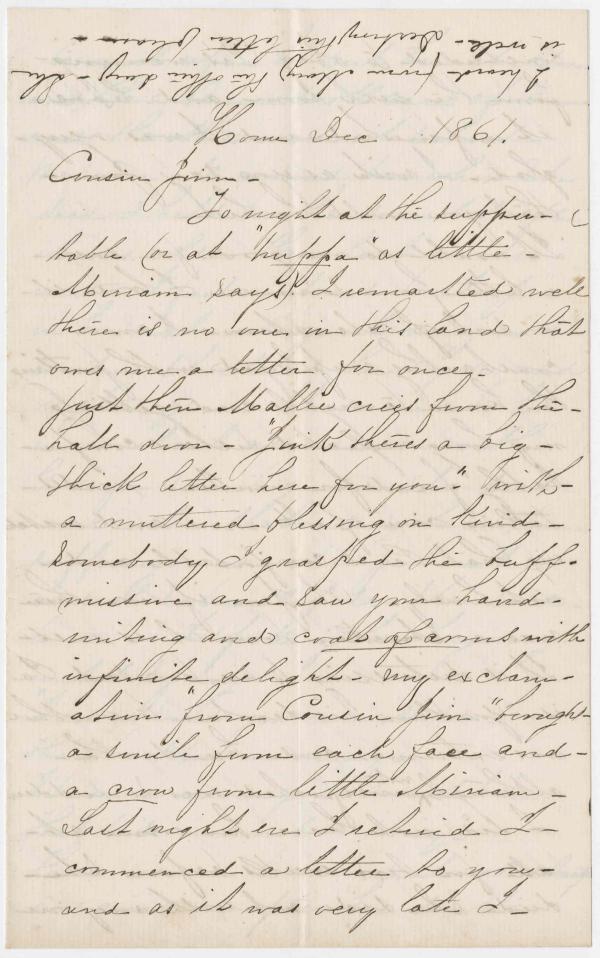 I heard from Mary the other day - She
is well - Destroy this letter please -
Home Dec 1861.
Cousin Jim -
To night at the supper -
table (or at "huppa" as little -
Miriam says) I remarked well
there is no one in this land that
owes me a letter for once -
Just then Mallie cries from the -
hall door - "Jink theres a big -
thick letter here for you -" With -
a muttered blessing on kind -
somebody, I grasped the buff -
missive and saw your hand -
writing and coat of arms with
infinite delight - my exclam -
ation "from Cousin Jim" brought -
a smile from each face and -
a crow from little Miriam -
Last night ere I retired I -
commenced a letter to you, -
and as it was very late I -